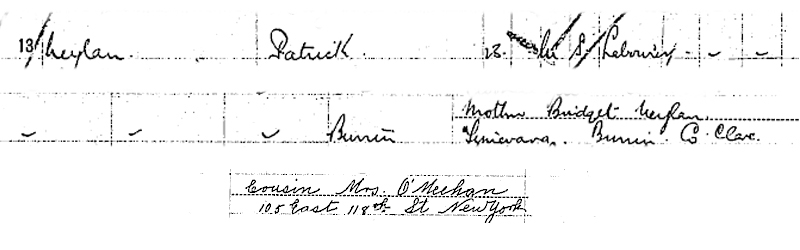 13 Neylan. Patrick. 23. M S Labourer - ~ ~
~ ~ ~ Burrin Mother Bridget Neylan.
Burrin. Co. Clare.
Cousin Mrs. O'Meehan
105 East 118th St New York